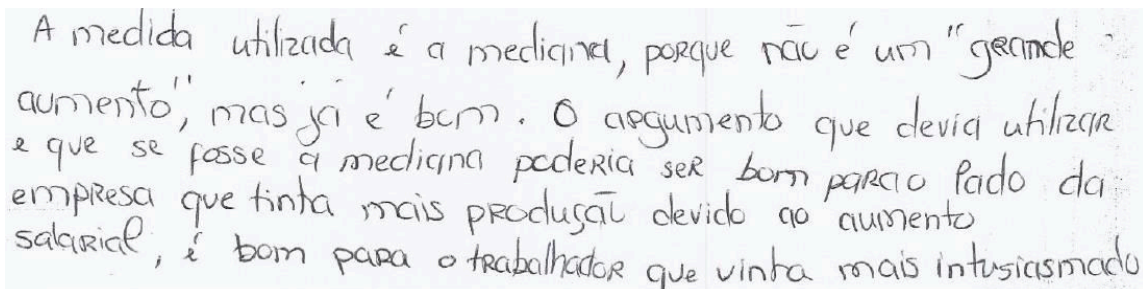 A medida utilizada é a mediana, porque não é um "grande
aumento", mas já é bom. O argumento que devia utilizar
e que se fosse a mediana poderia ser bom para o lado da
empresa que tinha mais produção devido ao aumento
salarial, é bom para o trabalhador que vinha mais intusiasmado